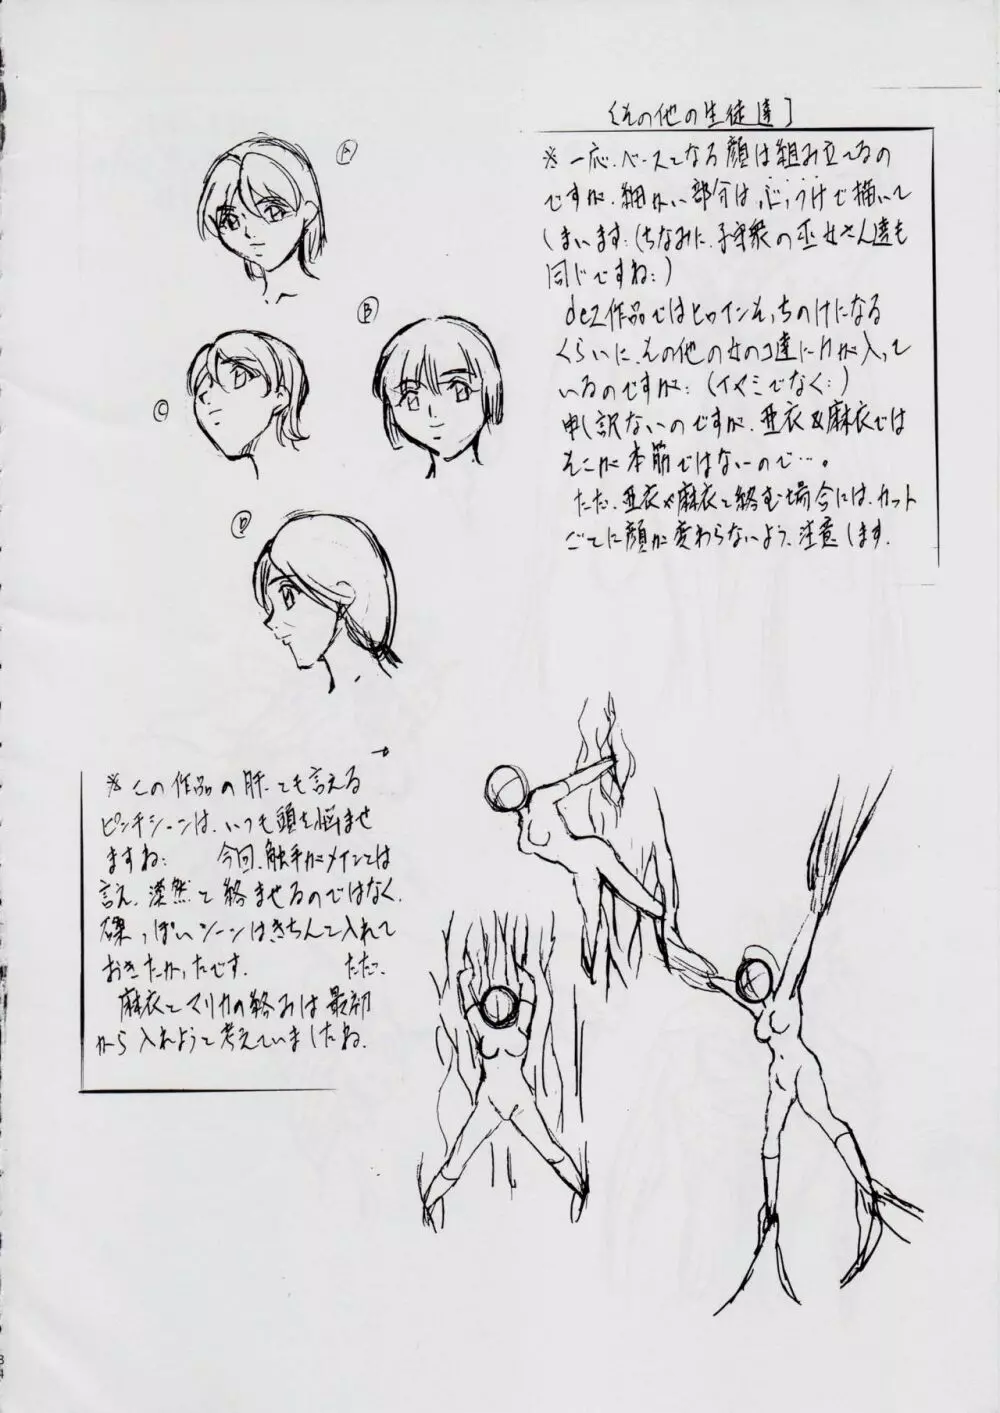 [その他の生徒達]
※一応、ベースとなる顔は組み立てるの
ですが、細かい部分は、ぶっつけで描いて
しまいます:(ちなみに、子守衆の巫女さん達も
同じですね:)
dez作品ではヒロインそっちのけになる
くらいに、その他の女のコ達に力が入って
いるのですが:(イヤミでなく:)
申し訳ないのですが、亜衣&麻衣では
そこが本筋ではないので…。
ただ、亜衣や麻衣と絡む場合には、カット
ごとに顔が変わらないよう、注意します。
A
B
C
D
※この作品の肝とも言える
ピンチシーンは、いつも頭を悩ませ
ますね: 今回、触手がメインとは
言え、漠然と絡ませるのではなく、
磔っぽいシーンはきちんと入れて
おきたかったです。 ただ、
麻衣とマリカの絡みは最初
から入れようと考えていましたね。
84